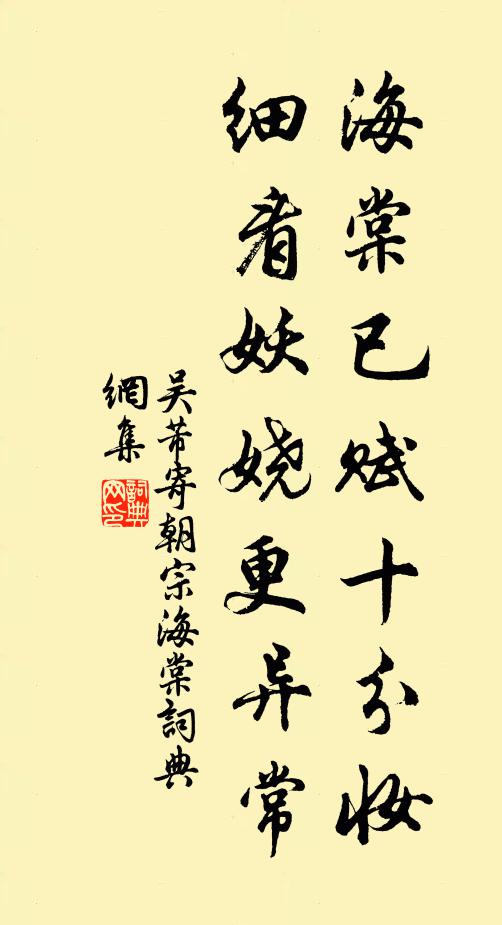 海棠已赋十分妆
细看妖娆更异常
吴芾寄朝宗海棠詞典
網集
詞典
网印